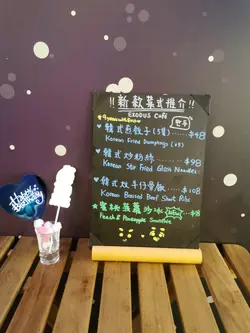 !! 新款菜式推介 !!
EXODUS Café
♥ 韓式煎餃子(5隻)......$48
Korean Fried Dumplings (x5)
♥ 韓式炒粉絲......$98
Korean Stir Fried Glass Noodles
♥ 韓式炆牛仔骨飯
Korean Braised Beef Short Ribs
★ 蜜桃菠蘿沙冰
Peach & Pineapple Smoothie
Happy Birthday